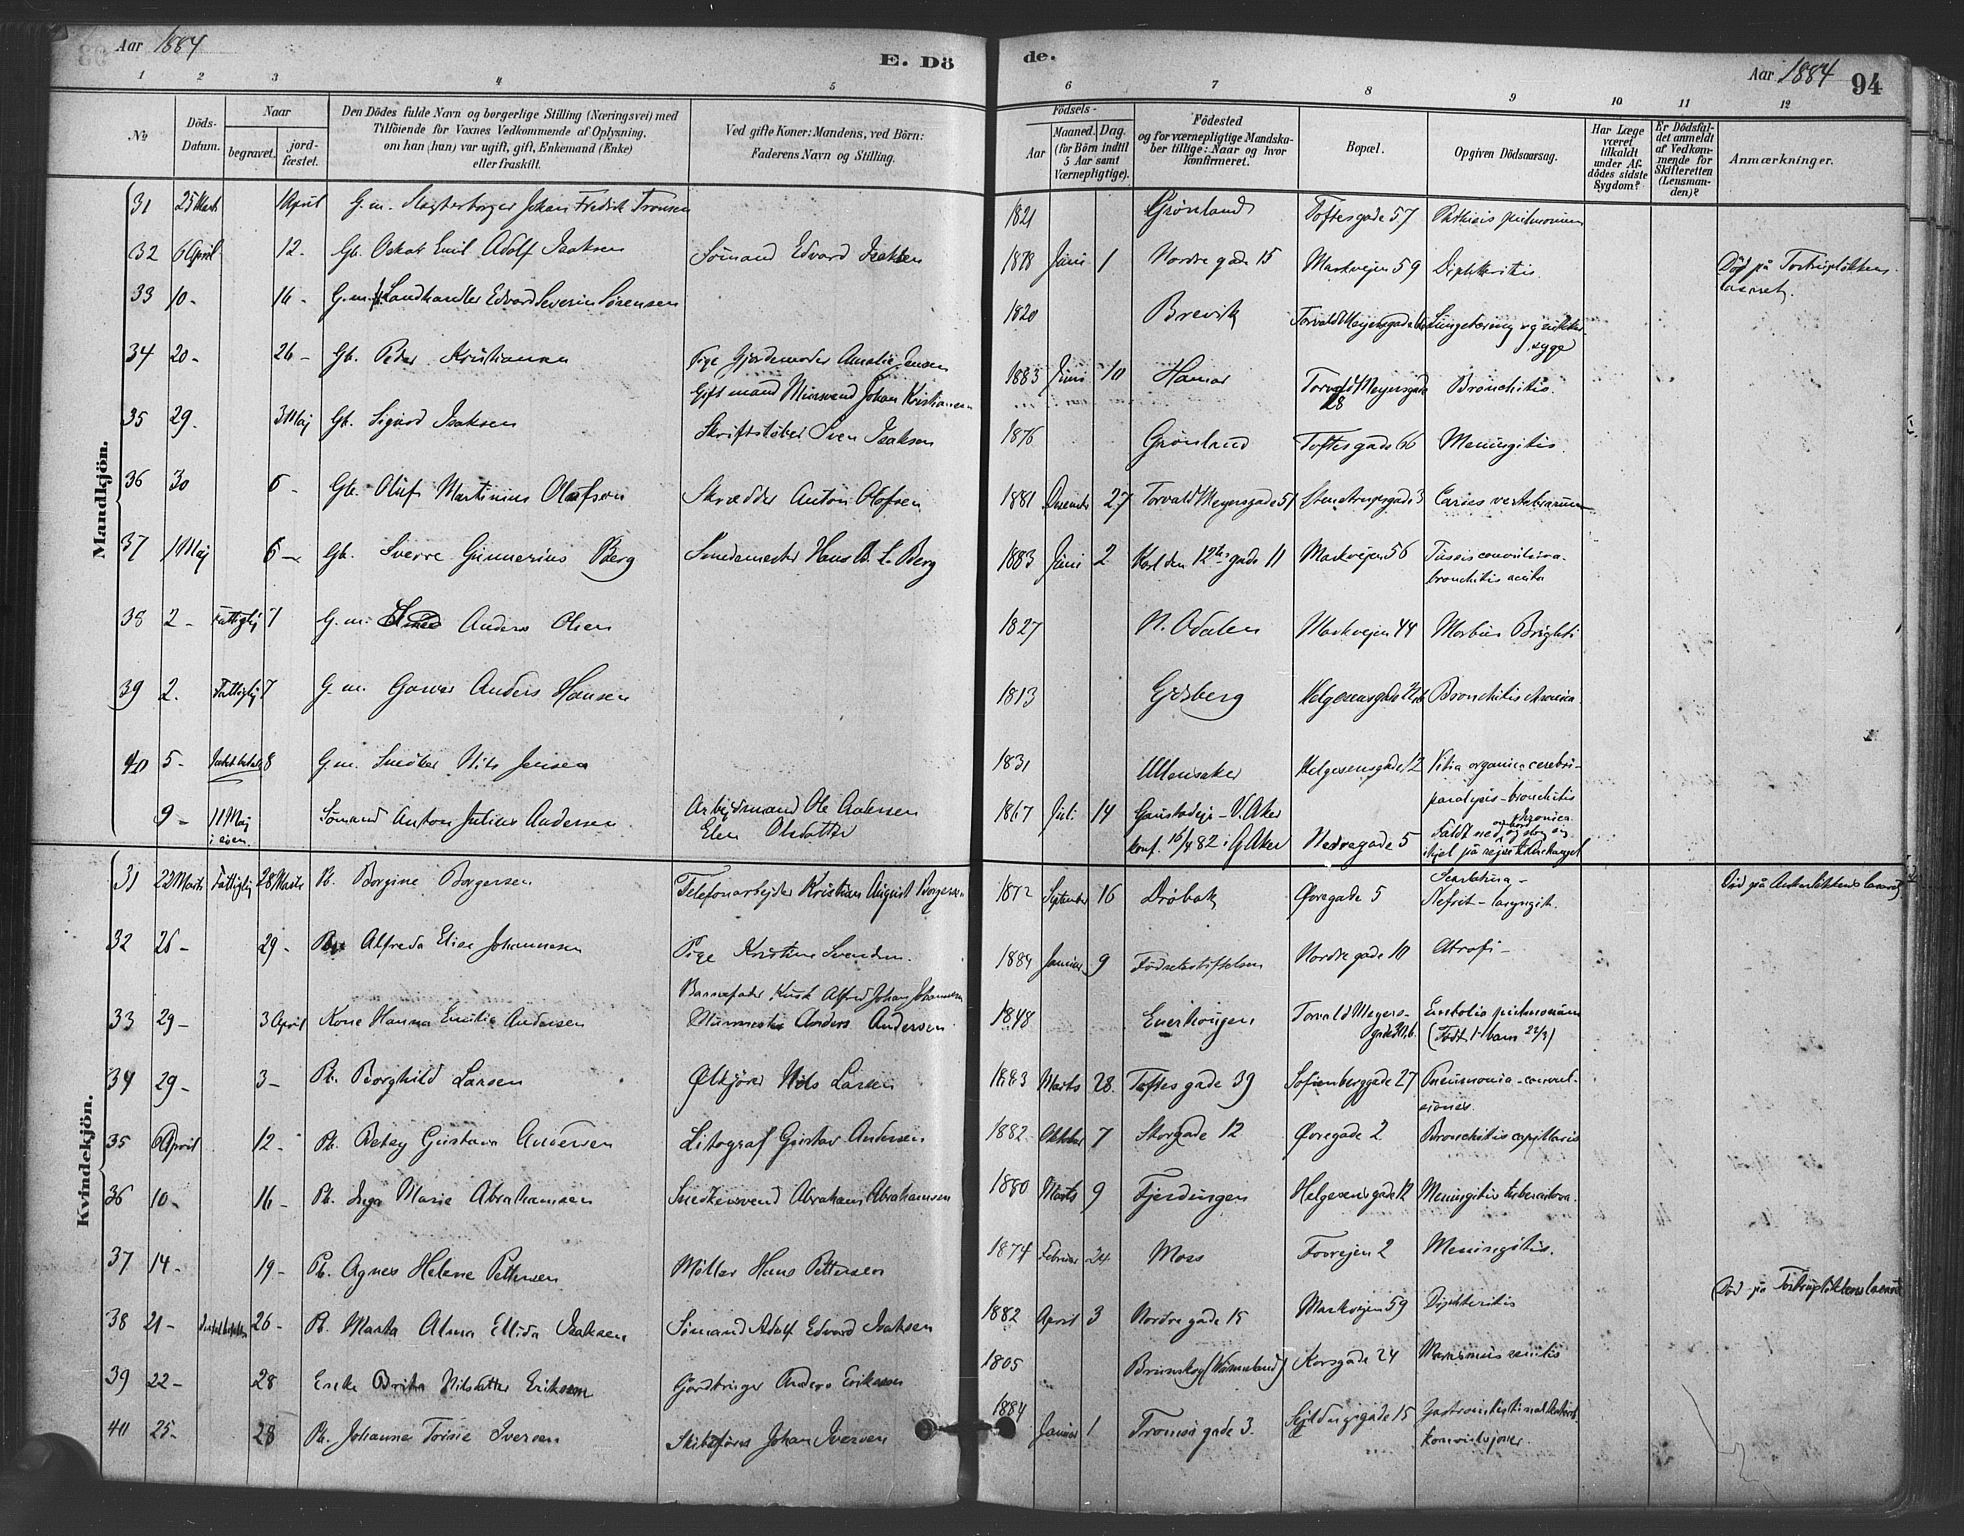 Aar 1884
E. Dö
de.
Aar 1884
94
1 2 3 4 5 6 7 8 9 10 11 12
No
Döds-
Datum.
Naar
begravet.
jord-
fæstet.
Den Dödes fulde Navn og borgerlige Stilling (Næringsvei) med
Tilföiende for Voxnes Vedkommende af Oplysning,
om han (hun) var ugift, gift, Enkemand (Enke)
eller fraskilt.
Ved gifte Koner: Mandens, ved Börn:
Faderens Navn og Stilling.
Födsels-
Aar
Maaned. Dag.
(for Börn indtil
5 Aar samt
Værnepligtige).
Födested
og for værnepligtige Mandska-
ber tillige: Naar og hvor
konfirmeret.
Bopæl.
Opgiven Dödsaarsag.
Har Læge
været
tilkaldt
under Af-
dödes sidste
Sygdom?
Er Dödsfal-
det anmeldt
af Vedkom-
mende for
Skifteretten
(Lensman-
den)?
Anmærkninger.
Mandkjön.
31 25 Marts 1 April G.m. Slagterborger Johan Fredrik Tronsen 1821 Grönland Toftesgade 57 Phthisis pulmonum
32 6 April 12- Gb. Oskar Emil Adolf Isaksen Sömand Edvard Isaksen 1878 Juni 1 Nordre gade 15 Markvejen 59 Diphteritis. Död på
33 10- 16- G.m. Landhandler Edvard Severin Sörensen 1820 Brevik Torvald Meyersgade Lungetæring og
syge
34 20- 26- Gb. Peder Kristiansen Pige Gjordemoder Amalie Jensen 1883 Juni 10 Hamar Torvald Meyersgade Bronchitis.
28
Gift mand Johan Kristiansen
35 29. 3 Maj Gb. Sigurd Isaksen Sven Isaksen 1876 Grönland Toftesgade 66 Meningitis.
36 30 6- Gb. Oluf Martinius Olafsen Skrædder Anton Olofsen 1881 Decemb 27 Torvald Meyersgade 51 Stenstrupsgade 3 Caries vertebrarum
37 1 Maj 6- Gb. Sverre Gunnerius Berg Smedemester Hans B. L. Berg 1883 Juni 2 Karl den 12tes gade 11 Markvejen 56 Tussis convulsiva-
bronchitis acuta
38 2- Fattiglig 7 G.m. Anders Olsen 1827 N. Odalen Markvejen 44 Morbus Brighti
39 2. Fattiglig 7 G.m. Garver Anders Hansen 1813 Helgesensgade Bronchitis chronica.
40 5- 8 G.m. Nils Jensen 1831 Ullensaker Helgesensgade 12 Vitia organica cerebri-
paralysis-bronchitis
chronica
9- 11 Maj Sömand Anton Julius Andersen Arbejdsmand Ole Andersen 1867 Juli 14 V. Aker
Elen Olsdatter konf. 82 i Ø Aker Nedregade 5
Kvindekjön.
31 22 Marts Fattiglig 28 Marts Pb. Borgine Borgersen Telefonarbejder Kristian August Borgersen 1872 September 16 Dröbak Övregade 5 Scarlatina-
Nefrit-laryngit. Död på Ankerlökkens lasaret
32 26- 29- Pb. Alfreda Elise Johannesen Pige Kristine Svendsen. 1884 Januar 9 Födselsstiftelsen Nordre gade 10 Atrofi-
Barnefader Kusk Alfred Johan Johannesen
33 29- 3 April Kone Hanna Emilie Andersen Murmester Anders Andersen 1848 Enerhougen Torvald Meyers-
gade 30, b. Embolia pulmonum
(Födt 1 barn 22/3)
34 29- 3- Pb. Borghild Larsen Ölkjörer Nils Larsen 1883 Marts 28. Toftesgade 39 Sofienberggade 27 Pneumonia-convul-
siones.
35 6 April 12- Pb. Betsy Gustava Andersen Litograf Gustav Andersen 1882 Oktober 7 Storgade 12 Övregade 2 Bronchitis capillaris
36 10- 16- Pb. Inga Marie Abrahamsen Snedkersvend Abraham Abrahamsen 1880 Marts 9 Fjerdingen Helgesensgade 12 Meningitis tuberculosa.
37 14- 19- Pb. Agnes Helene Pettersen Möller Hans Pettersen 1874 Februar 24 Moss Fossvejen 2 Meningitis.
38 21- 26- Pb. Marta Alma Ellida Isaksen Sömand Adolf Edvard Isaksen 1882 April 3 Nordre gade 15 Markvejen 59 Diphteritis Död på
39 22- 28 Enke Brita Nilsdatter Eriksson Gördbruger Anders Eriksson 1805 Brunskog (Wärmeland) Korsgade 24 Marasmus senilis
40 25- 28 Pb. Johanne Iversen Skibsförer Johan Iversen 1884 Januar 1 Tromsögade 3. Sejldugsgade 15